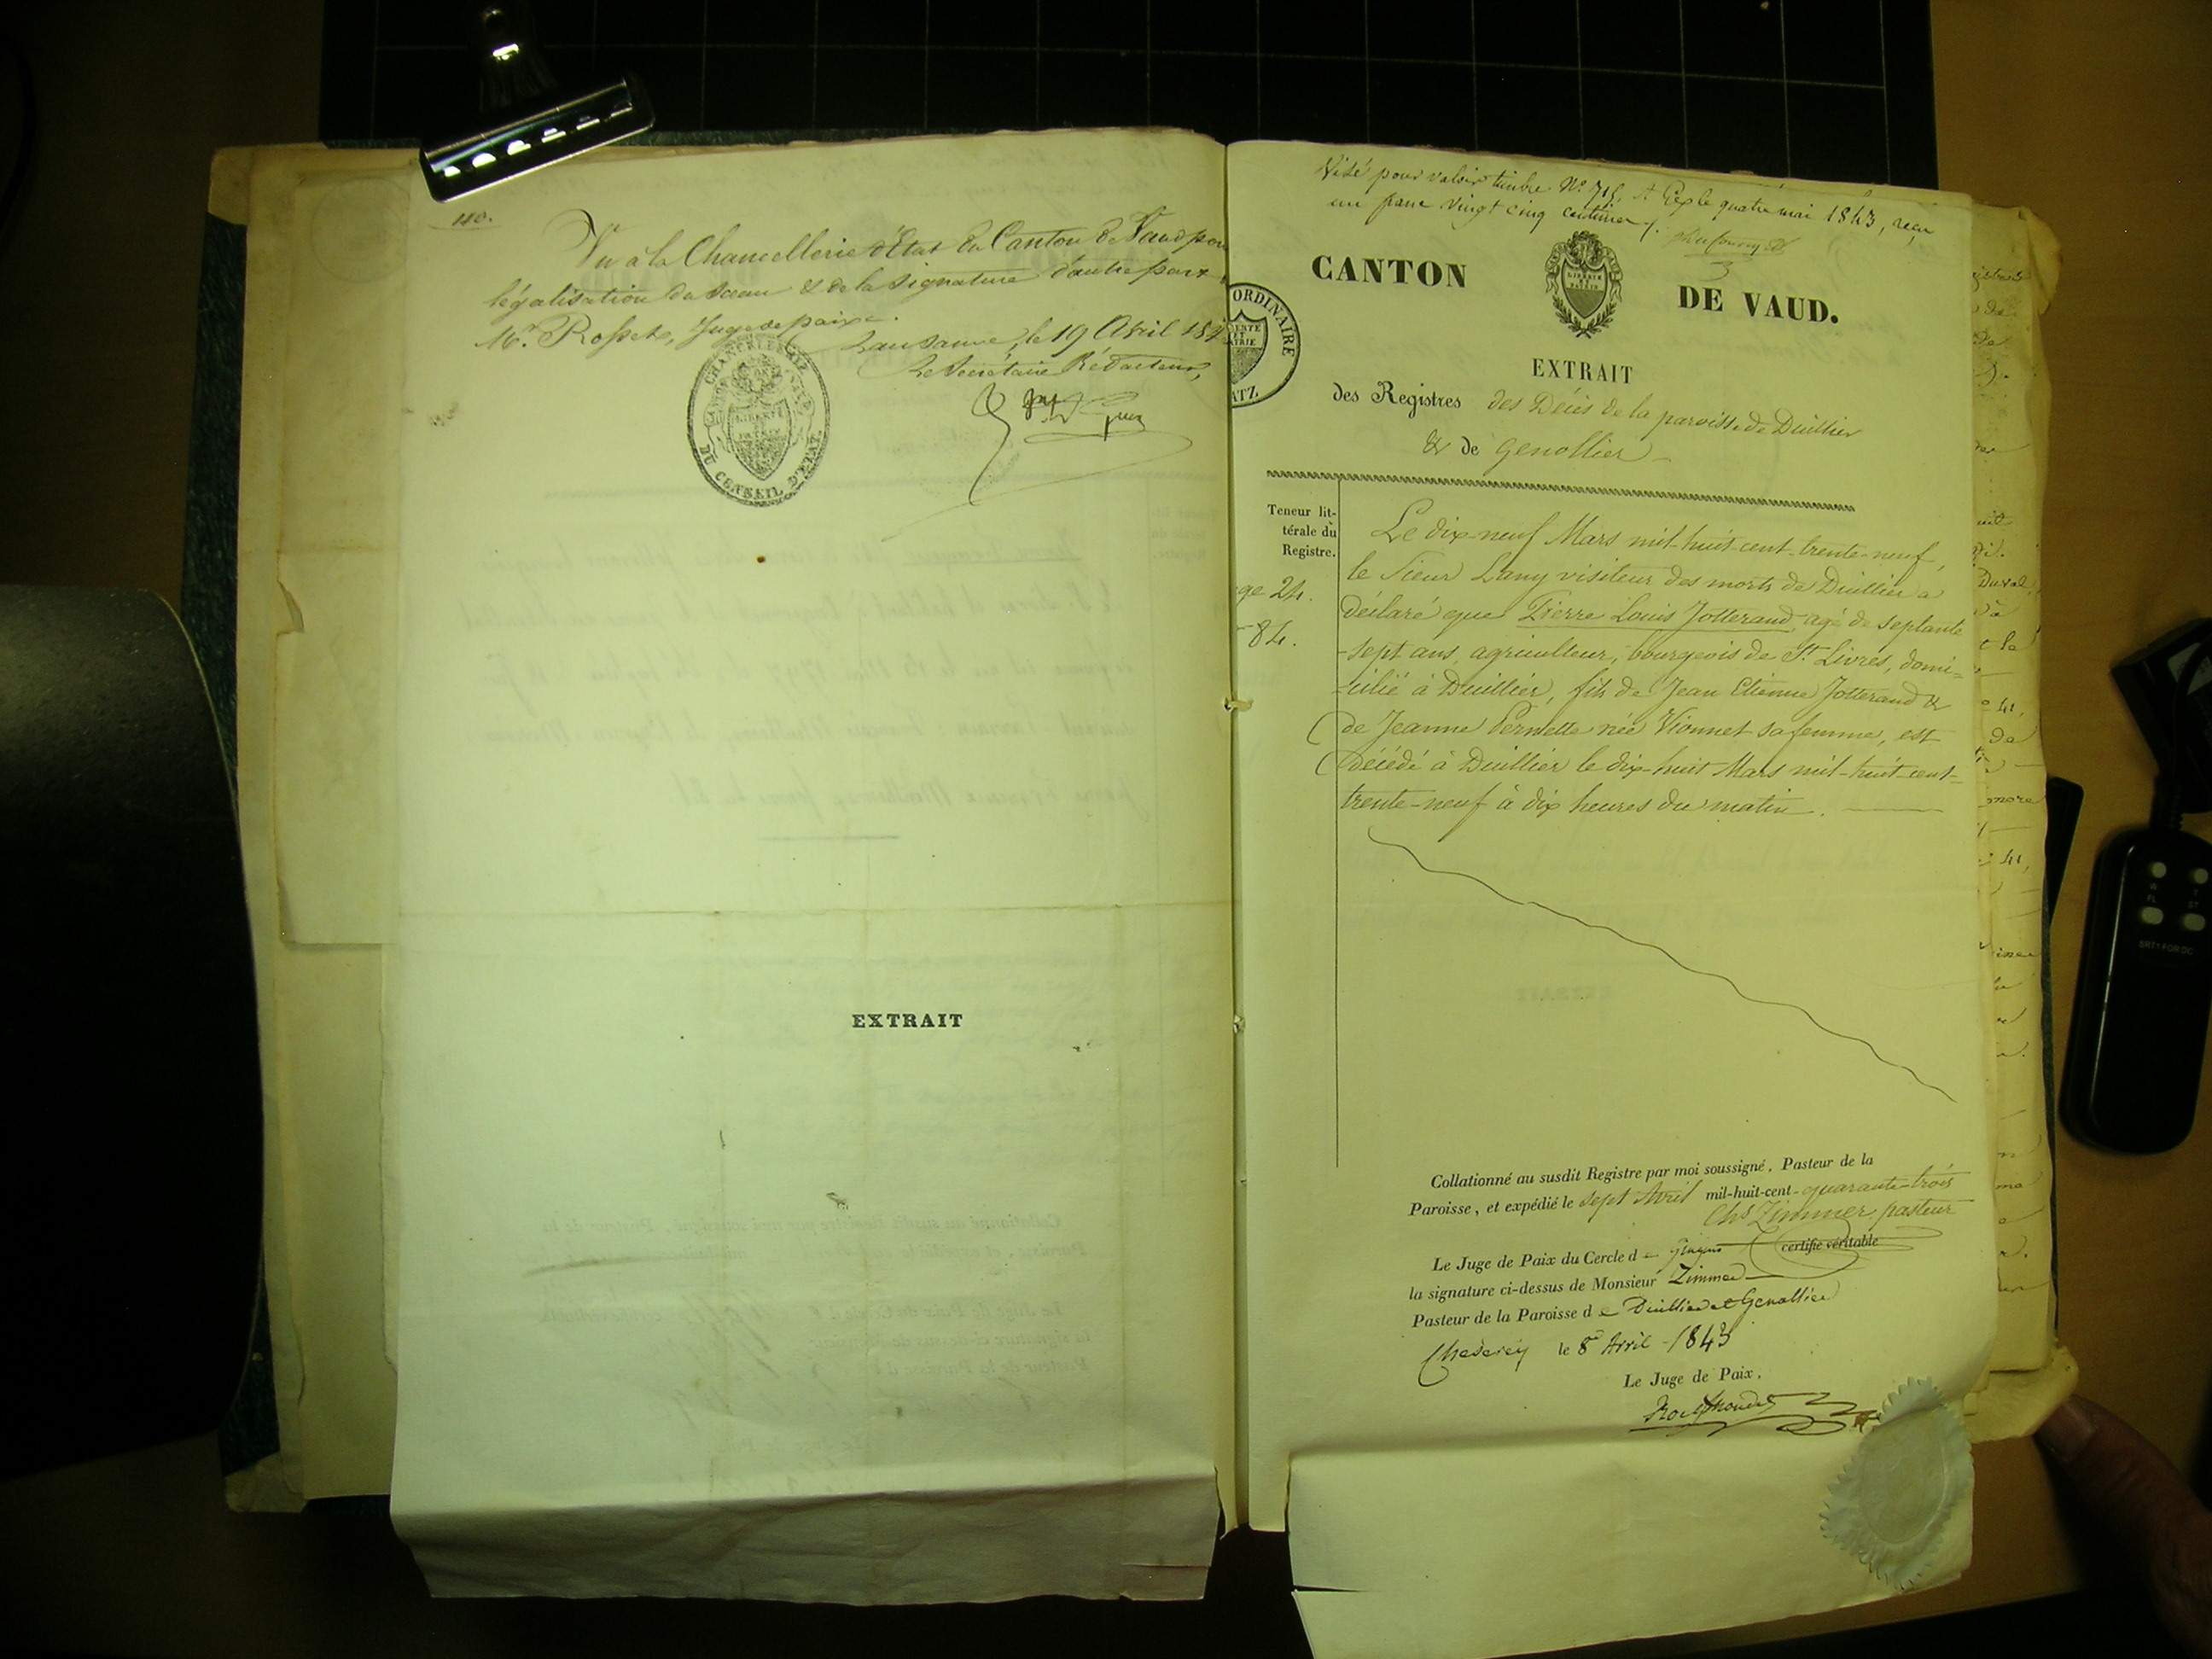 110.
Vu à la Chancellerie d'Etat du Canton de Vaud pour
légalisation du sceau & de la signature d'autre part,
Mr. Rosset, Juge de paix.
Lausanne, le 19 Avril 184
Le Secrétaire Rédacteur,
CHANCELLERIE
DU CONSEIL D'ETAT.
EXTRAIT
Visé pour valoir timbre No. 715, A Gex le quatre mai 1843, reçu
un franc vingt cinq centimes
3
ORDINAIRE
BATZ
CANTON DE VAUD.
LIBERTÉ ET PATRIE
EXTRAIT
des Registres des Décès de la paroisse de Duillier
& de Genollier
Teneur lit-
térale du
Registre.
ge 24.
84.
Le dix-neuf Mars mil-huit-cent-trente-neuf,
le Sieur Lany visiteur des morts de Duillier a
déclaré que Pierre Louis Jotterand, agé de septante
-sept ans, agriculteur, bourgeois de St. Livres, domi-
cilié à Duillier, fils de Jean Etienne Jotterand &
de Jeanne Pernette née Vionnet sa femme, est
décédé à Duillier le dix-huit Mars mil-huit-cent-
trente-neuf à dix heures du matin.
Collationné au susdit Registre par moi soussigné, Pasteur de la
Paroisse, et expédié le sept Avril mil-huit-cent-quarante-trois
Chs Zimmer, pasteur
Le Juge de Paix du Cercle de Gingins certifie véritable
la signature ci-dessus de Monsieur Zimmer
Pasteur de la Paroisse de Duillier et Genollier
Cheserex le 8 Avril 1843
Le Juge de Paix,